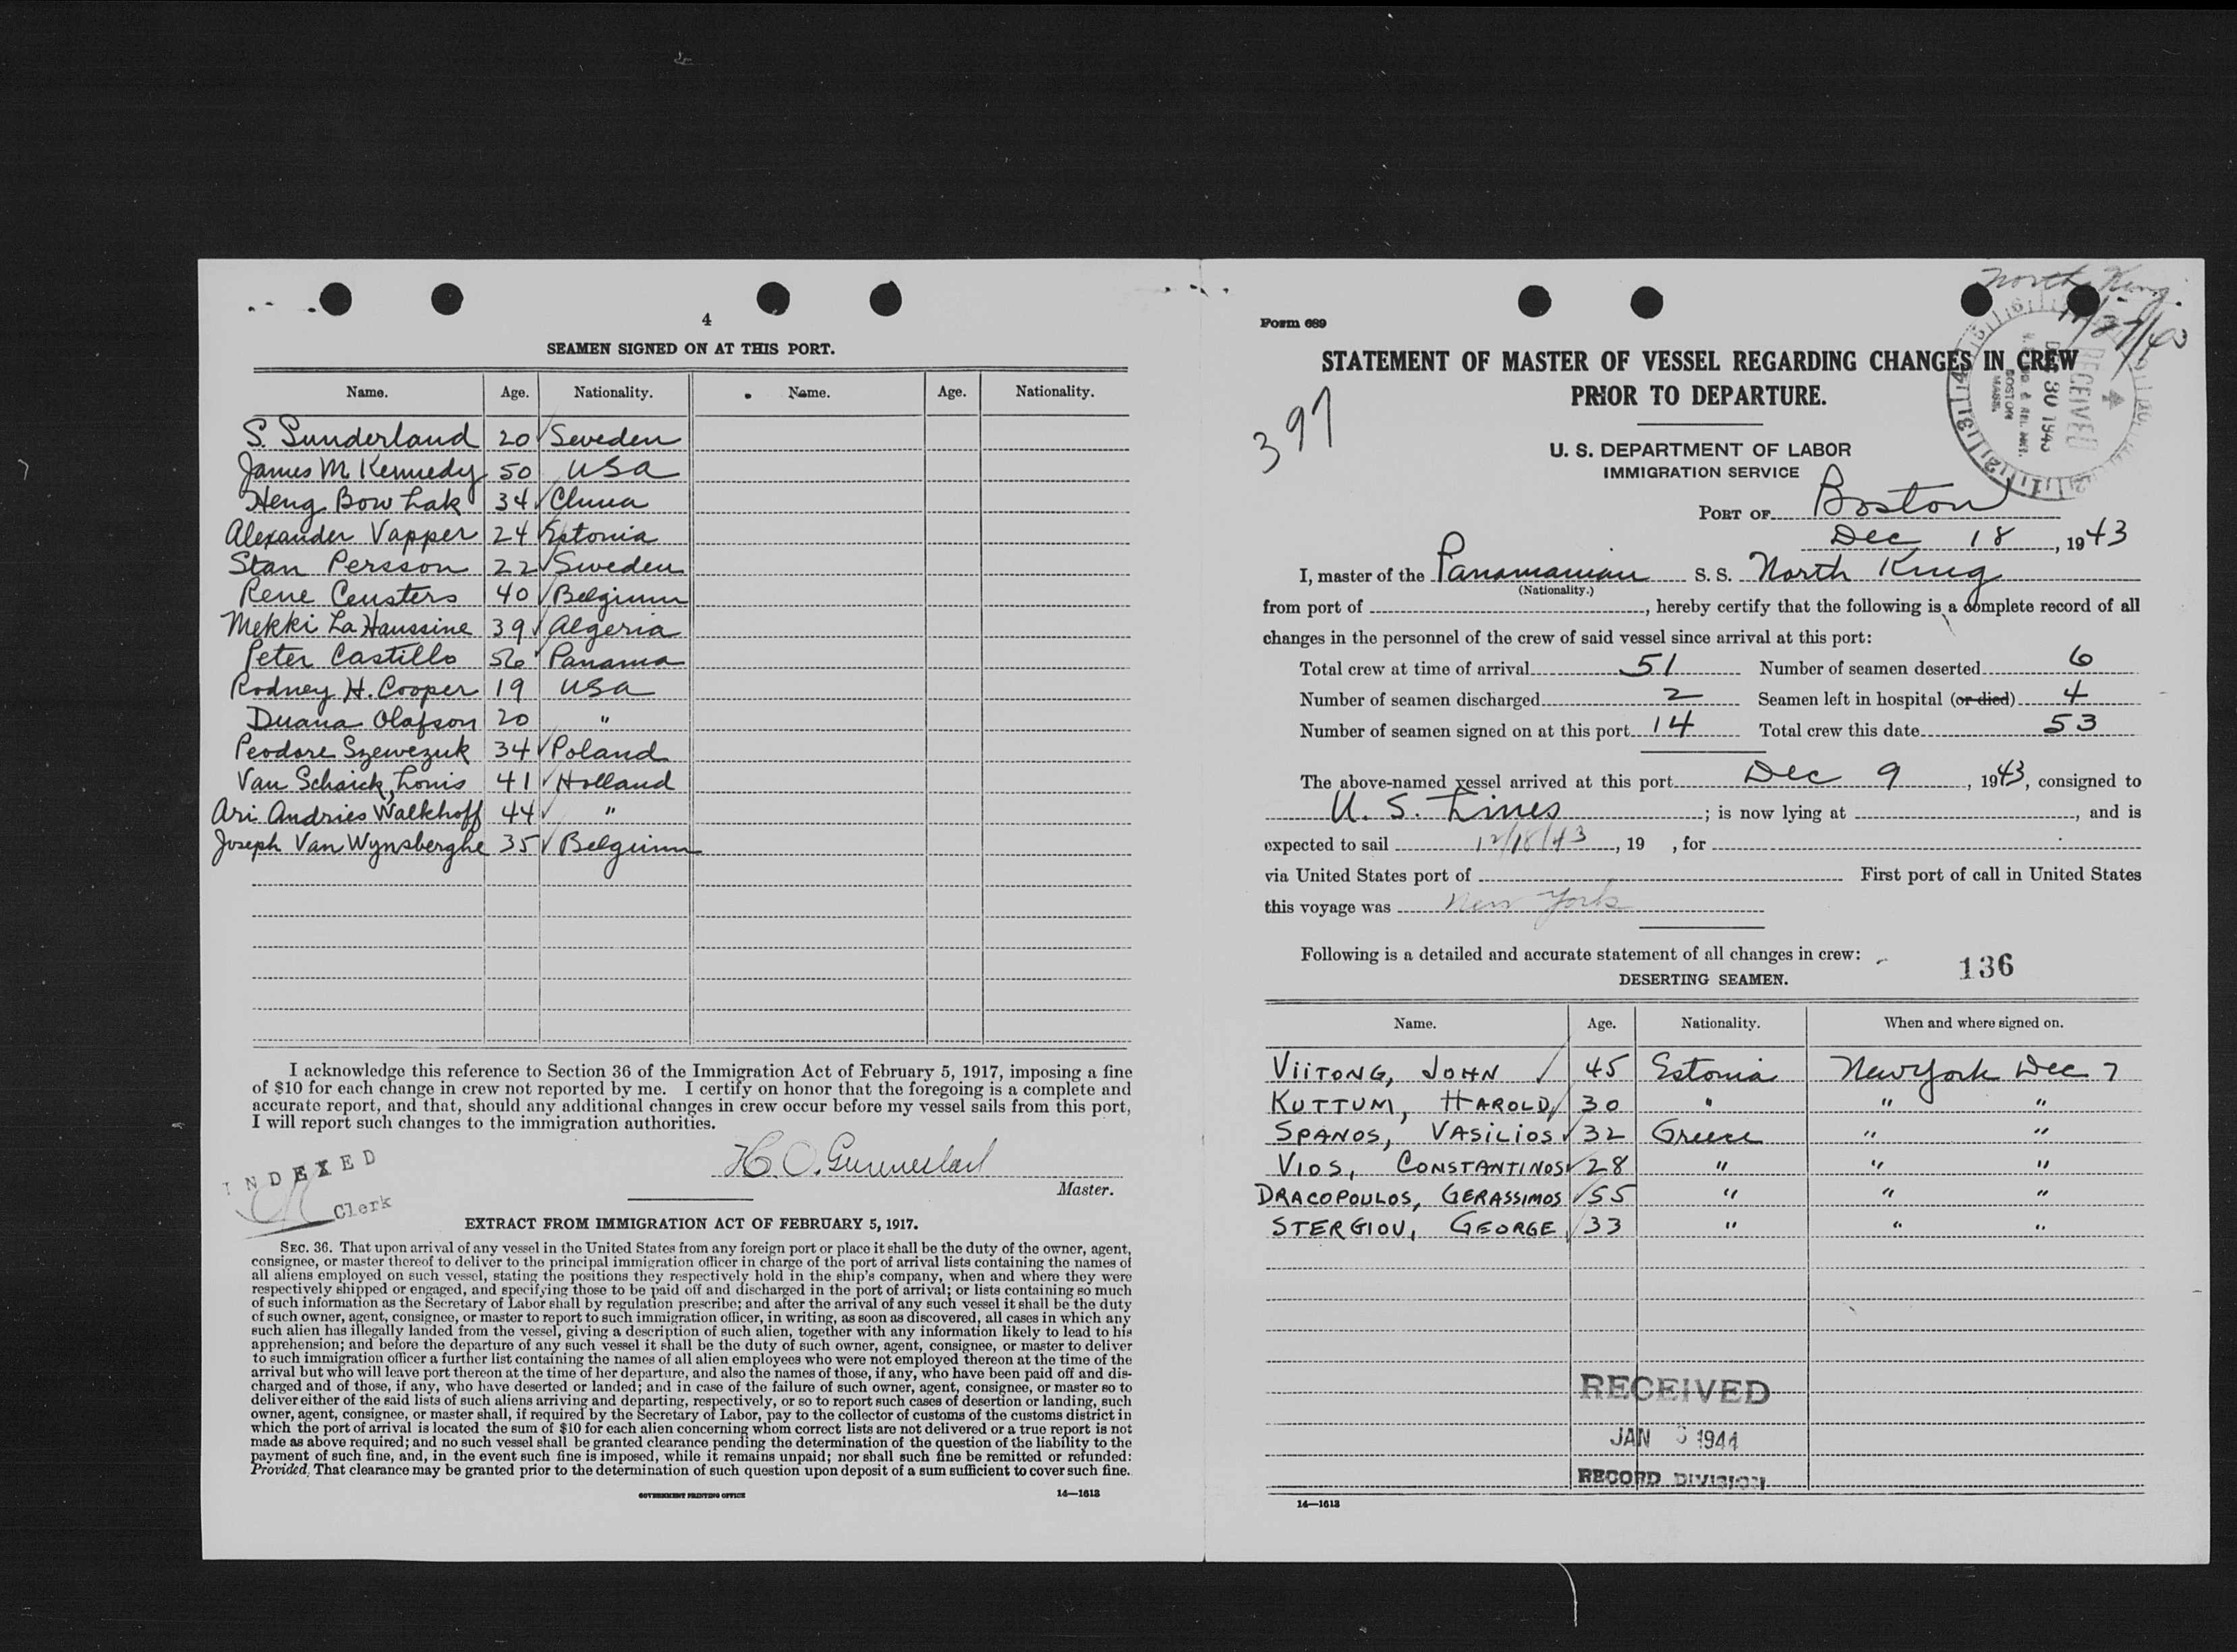 4
SEAMEN SIGNED ON AT THIS PORT.
Name. Age. Nationality. Name. Age. Nationality.
S. Sunderland 20 Seweden
James M Kennedy 50 USA
Heng Bow Lak 34 China
Alexander Vapper 24 Estonia
Stan Persson 22 Sweden
Rene Ceusters 40 Belgium
Mekki La Haussine 39 Algeria
Peter Castillo 56 Panama
Rodney H. Cooper 19 USA
Duana Olafson 20 "
Peodore Szewezuk 34 Poland
Van Schaick, Louis 41 Holland
Ari Andries Walkhoff 44 "
Joseph Van Wynsberghe 35 Belgium
I acknowledge this reference to Section 36 of the Immigration Act of February 5, 1917, imposing a fine
of $10 for each change in crew not reported by me. I certify on honor that the foregoing is a complete and
accurate report, and that, should any additional changes in crew occur before my vessel sails from this port,
I will report such changes to the immigration authorities.
H. O.
Master.
INDEXED
Clerk
EXTRACT FROM IMMIGRATION ACT OF FEBRUARY 5, 1917.
SEC. 36. That upon arrival of any vessel in the United States from any foreign port or place it shall be the duty of the owner, agent,
consignee, or master thereof to deliver to the principal immigration officer in charge of the port of arrival lists containing the names of
all aliens employed on such vessel, stating the positions they respectively hold in the ship's company, when and where they were
respectively shipped or engaged, and specifying those to be paid off and discharged in the port of arrival; or lists containing so much
of such information as the Secretary of Labor shall by regulation prescribe; and after the arrival of any such vessel it shall be the duty
of such owner, agent, consignee, or master to report to such immigration officer, in writing, as soon as discovered, all cases in which any
such alien has illegally landed from the vessel, giving a description of such alien, together with any information likely to lead to his
apprehension; and before the departure of any such vessel it shall be the duty of such owner, agent, consignee, or master to deliver
to such immigration officer a further list containing the names of all alien employees who were not employed thereon at the time of the
arrival but who will leave port thereon at the time of her departure, and also the names of those, if any, who have been paid off and dis-
charged and of those, if any, who have deserted or landed; and in case of the failure of such owner, agent, consignee, or master so to
deliver either of the said lists of such aliens arriving and departing, respectively, or so to report such cases of desertion or landing, such
owner, agent, consignee, or master shall, if required by the Secretary of Labor, pay to the collector of customs of the customs district in
which the port of arrival is located the sum of $10 for each alien concerning whom correct lists are not delivered or a true report is not
made as above required; and no such vessel shall be granted clearance pending the determination of the question of the liability to the
payment of such fine, and, in the event such fine is imposed, while it remains unpaid; nor shall such fine be remitted or refunded:
Provided, That clearance may be granted prior to the determination of such question upon deposit of a sum sufficient to cover such fine.
GOVERNMENT PRINTING OFFICE 14—1613
North King.
11/27/43
Form 689
STATEMENT OF MASTER OF VESSEL REGARDING CHANGES IN CREW
PRIOR TO DEPARTURE.
RECEIVED
DEC 30 1943
BOSTON
MASS.
397
U. S. DEPARTMENT OF LABOR
IMMIGRATION SERVICE
PORT OF Boston
Dec 18, 1943
I, master of the Panamanian S. S. North King
(Nationality.)
from port of , hereby certify that the following is a complete record of all
changes in the personnel of the crew of said vessel since arrival at this port:
Total crew at time of arrival 51 Number of seamen deserted 6
Number of seamen discharged 2 Seamen left in hospital (or died) 4
Number of seamen signed on at this port 14 Total crew this date 53
The above-named vessel arrived at this port Dec 9, 1943, consigned to
U. S. Lines ; is now lying at , and is
expected to sail 12/18/43, 19 , for
via United States port of First port of call in United States
this voyage was New York
Following is a detailed and accurate statement of all changes in crew:
136
DESERTING SEAMEN.
Name. Age. Nationality. When and where signed on.
VIITONG, JOHN 45 Estonia New York Dec 7
KUTTUM, HAROLD 30 " " "
SPANOS, VASILIOS 32 Greece " "
VIOS, CONSTANTINOS 28 " " "
DRACOPOULOS, GERASSIMOS 55 " " "
STERGIOU, GEORGE 33 " " "
RECEIVED
JAN 1944
RECORD DIVISION
14—1613